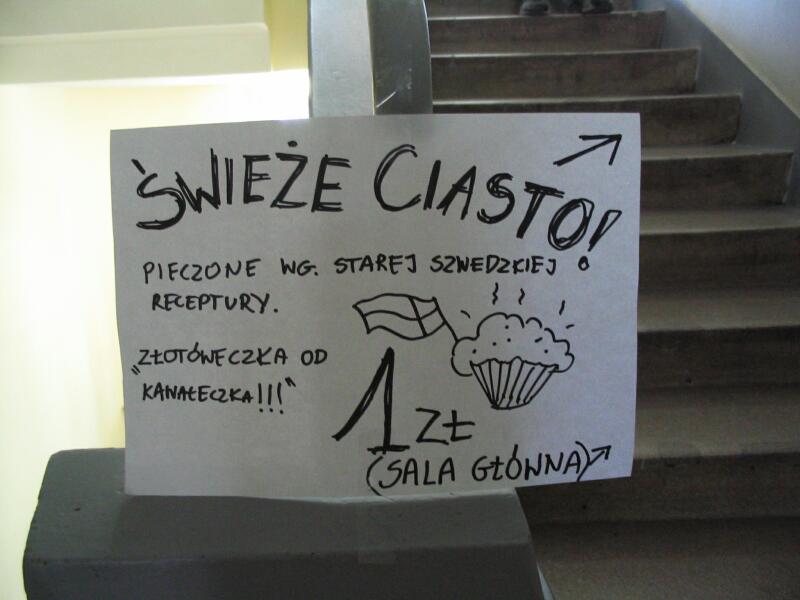 ŚWIEŻE CIASTO!
PIECZONE WG. STAREJ SZWEDZKIEJ
RECEPTURY.
„ZŁOTÓWECZKA OD
KAWAŁECZKA!!!"
1 ZŁ
(SALA GŁÓWNA)